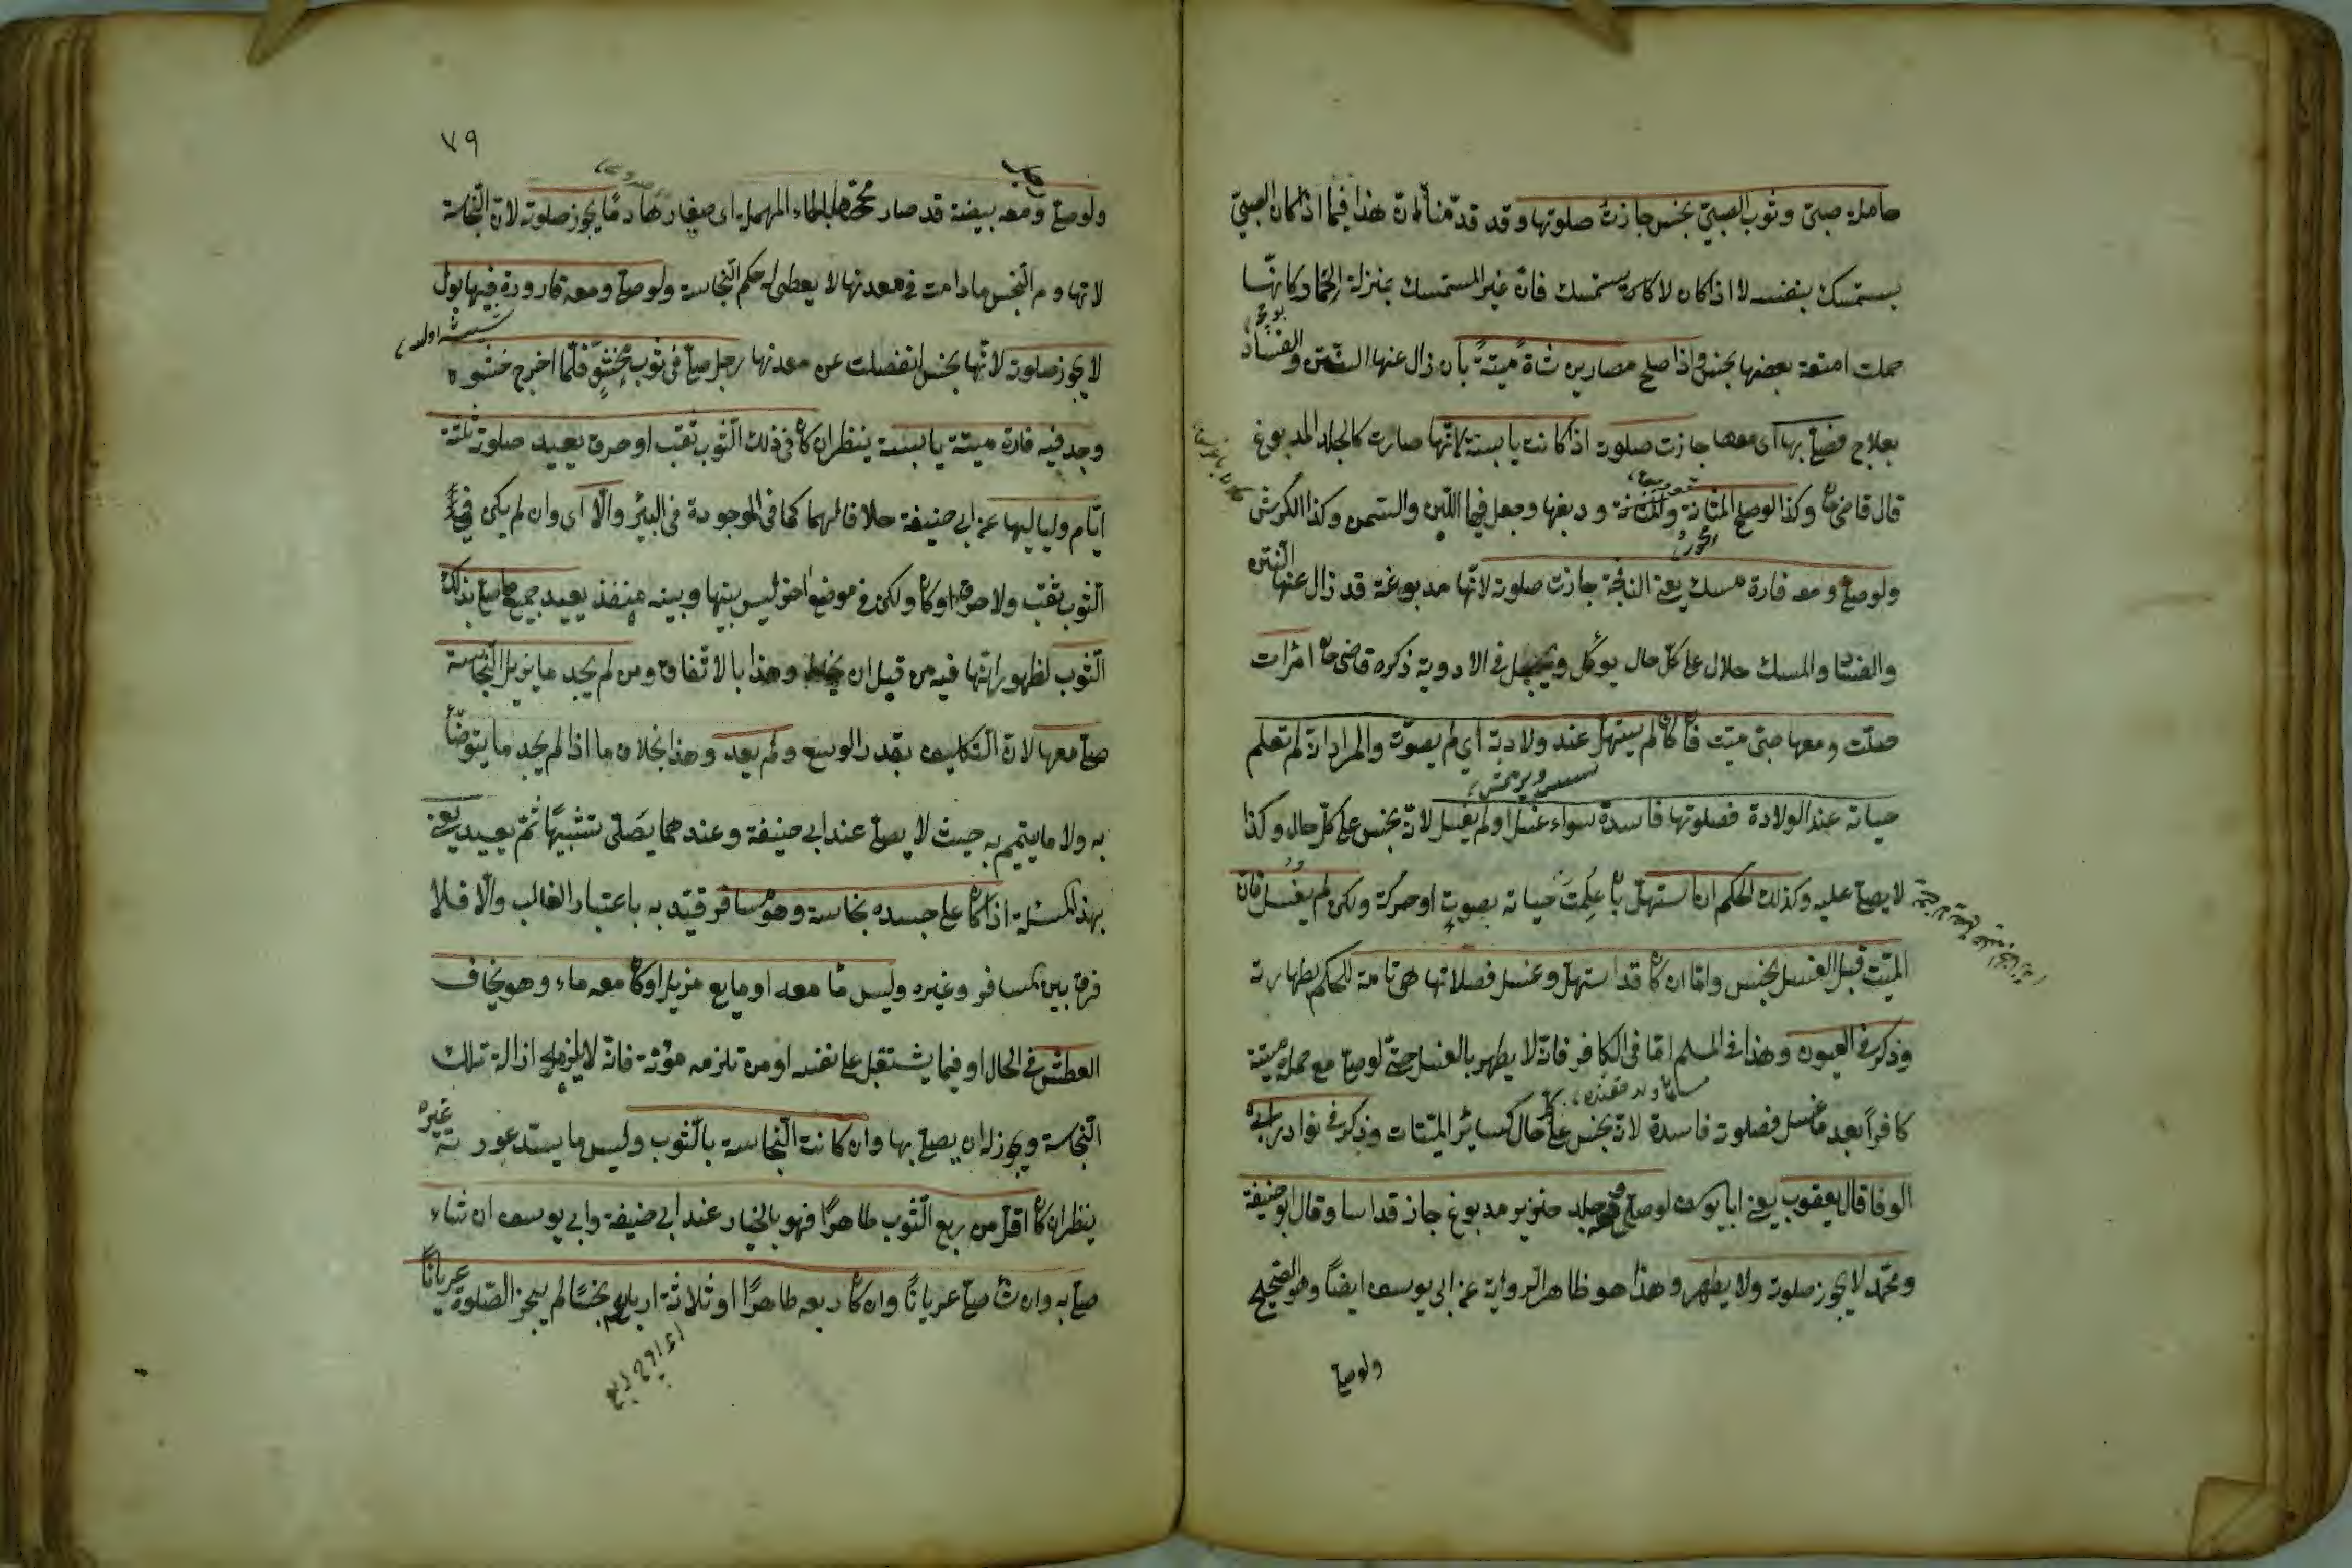 حاملة صبىّ وثوب الصبىّ نجس جازت صلوتها وقد قدّمنا انّ هذا فيما اذا كان الصبىّ
يستمسك بنفسه لا اذا كان لا يستمسك فانّ غير المستمسك بمنزلة الجماد كانّها
حملت امتعة بعضها نجس واذا اصلح مصارين شاة ميتة بأن زال عنها النتن والفساد
بعلاج فصلّى بها اى معها جازت صلوته اذا كانت يابسة لانّها صارت كالجلد المدبوغ
قال قاضى خا وكذا لو اصلح المثانة ودبغها وجعل فيها اللبن والسمن وكذا الكرش
ولو صلّى ومعه فارة مسك يعنى النافجة جازت صلوته لانّها مدبوغة قد زال عنها النتن
والفسا والمسك حلال على كلّ حال يؤكل ويجعل فى الادوية ذكره قاضى خا امرأت
صلّت ومعها صبى ميّت فا كا لم يستهلّ عند ولادته اى لم يصوّت والمراد انه لم تعلم
حياته عند الولادة فصلوتها فاسدة سواء غسل او لم يغسل لانّه نجس على كلّ حال وكذا
لا يصلّى عليه وكذلك الحكم ان استهلّ با عُلِمَتْ حياته بصوت او حركة ولكن لم يغسل فانّ
الميّت قبل الغسل نجس وامّا ان كا قد استهلّ وغسل فصلاتها تامة للحكم بطهارته
وذكر فى العيون وهذا فى المسلم امّا فى الكافر فانّه لا يطهر بالغسل حتّى لو صلّى مع حمله ميتة
كافرًا بعد ما غسل فصلوته فاسدة لانّه نجس على كلّ حال كسائر الميتات وذكر فى نوادر ابى
الوفا قال يعقوب يعنى ابا يوسف لو صلّى فى جلد خنزير مدبوغ جاز قد اسا وقال ابو حنيفة
ومحمّد لا يجوز صلوته ولا يطهر وهذا هو ظاهر الرواية عن ابى يوسف ايضًا وهو الصحيح
ولو صلّى
٧٩
ولو صلّى ومعه بيضة قد صار محّها بالحاء المهملة اى صفارها دمًا يجوز صلوته لانّ النّجاسة
لانّها دم النّجس ما دامت فى معدنها لا يعطى له حكم النّجاسة ولو صلّى ومعه قارورة فيها بول
لا يجوز صلوته لانّها نجس انفصلت عن معدنها رجل صلّى فى ثوب محشوّ فلمّا اخرج حشوه
وجد فيه فارة ميتة يابسة ينظر ان كا فى ذلك الثوب ثقب او خرق يعيد صلوة ثلثة
ايّام ولياليها عند ابى حنيفة خلافًا لهما كما فى الموجودة فى البئر والّا اى وان لم يكن فى
الثوب ثقب ولا خرق او كا ولكن فى موضع اخر ليس بينها وبينه منفذ يعيد جميع ما صلّى بذلك
الثوب لظهور انّها فيه من قبل ان يخاط وهذا بالاتّفاق ومن لم يجد ما يزيل النّجاسة
صلّى معها لانّ التكليف بقدر الوسع ولم يعد وهذا بخلاف ما اذا لم يجد ما يتوضّأ
به ولا ما يتيمّم به حيث لا يصلّى عند ابى حنيفة وعندهما يصلّى تشبيهًا ثمّ يعيد يعنى
بهذه المسئلة اذا كا على جسده نجاسة وهو مسافر قيّد به باعتبار الغالب والّا فلا
فرق بين المسافر وغيره وليس ما معه او مايع مزيل او كا معه ماء وهو يخاف
العطش فى الحال او فيما يستقبل على نفسه او من تلزمه مؤنته فانّه لا يلزمه ازالة تلك
النّجاسة ويجوز له ان يصلّى بها وان كانت النّجاسة بالثوب وليس ما يستر عورته غيره
ينظر ان كا اقلّ من ربع الثوب طاهرًا فهو بالخيار عند ابى حنيفة وابى يوسف ان شاء
صلّى به وان شا صلّى عريانًا وان كا ربعه طاهرًا او ثلاثة ارباعه نجسًا لم يجز الصّلوة عريانًا